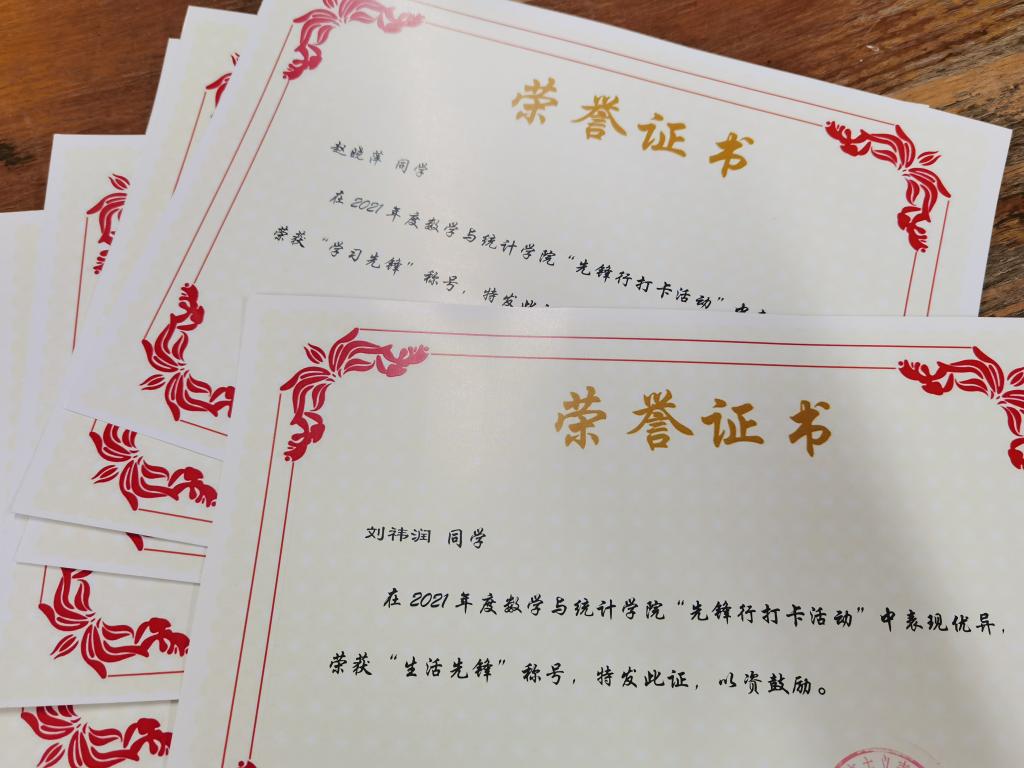 荣誉证书
赵晓萍 同学
在2021年度数学与统计学院“先锋行打卡活动”中
荣获“学习先锋”称号，特发此
荣誉证书
刘祎润 同学
在2021年度数学与统计学院“先锋行打卡活动”中表现优异，
荣获“生活先锋”称号，特发此证，以资鼓励。